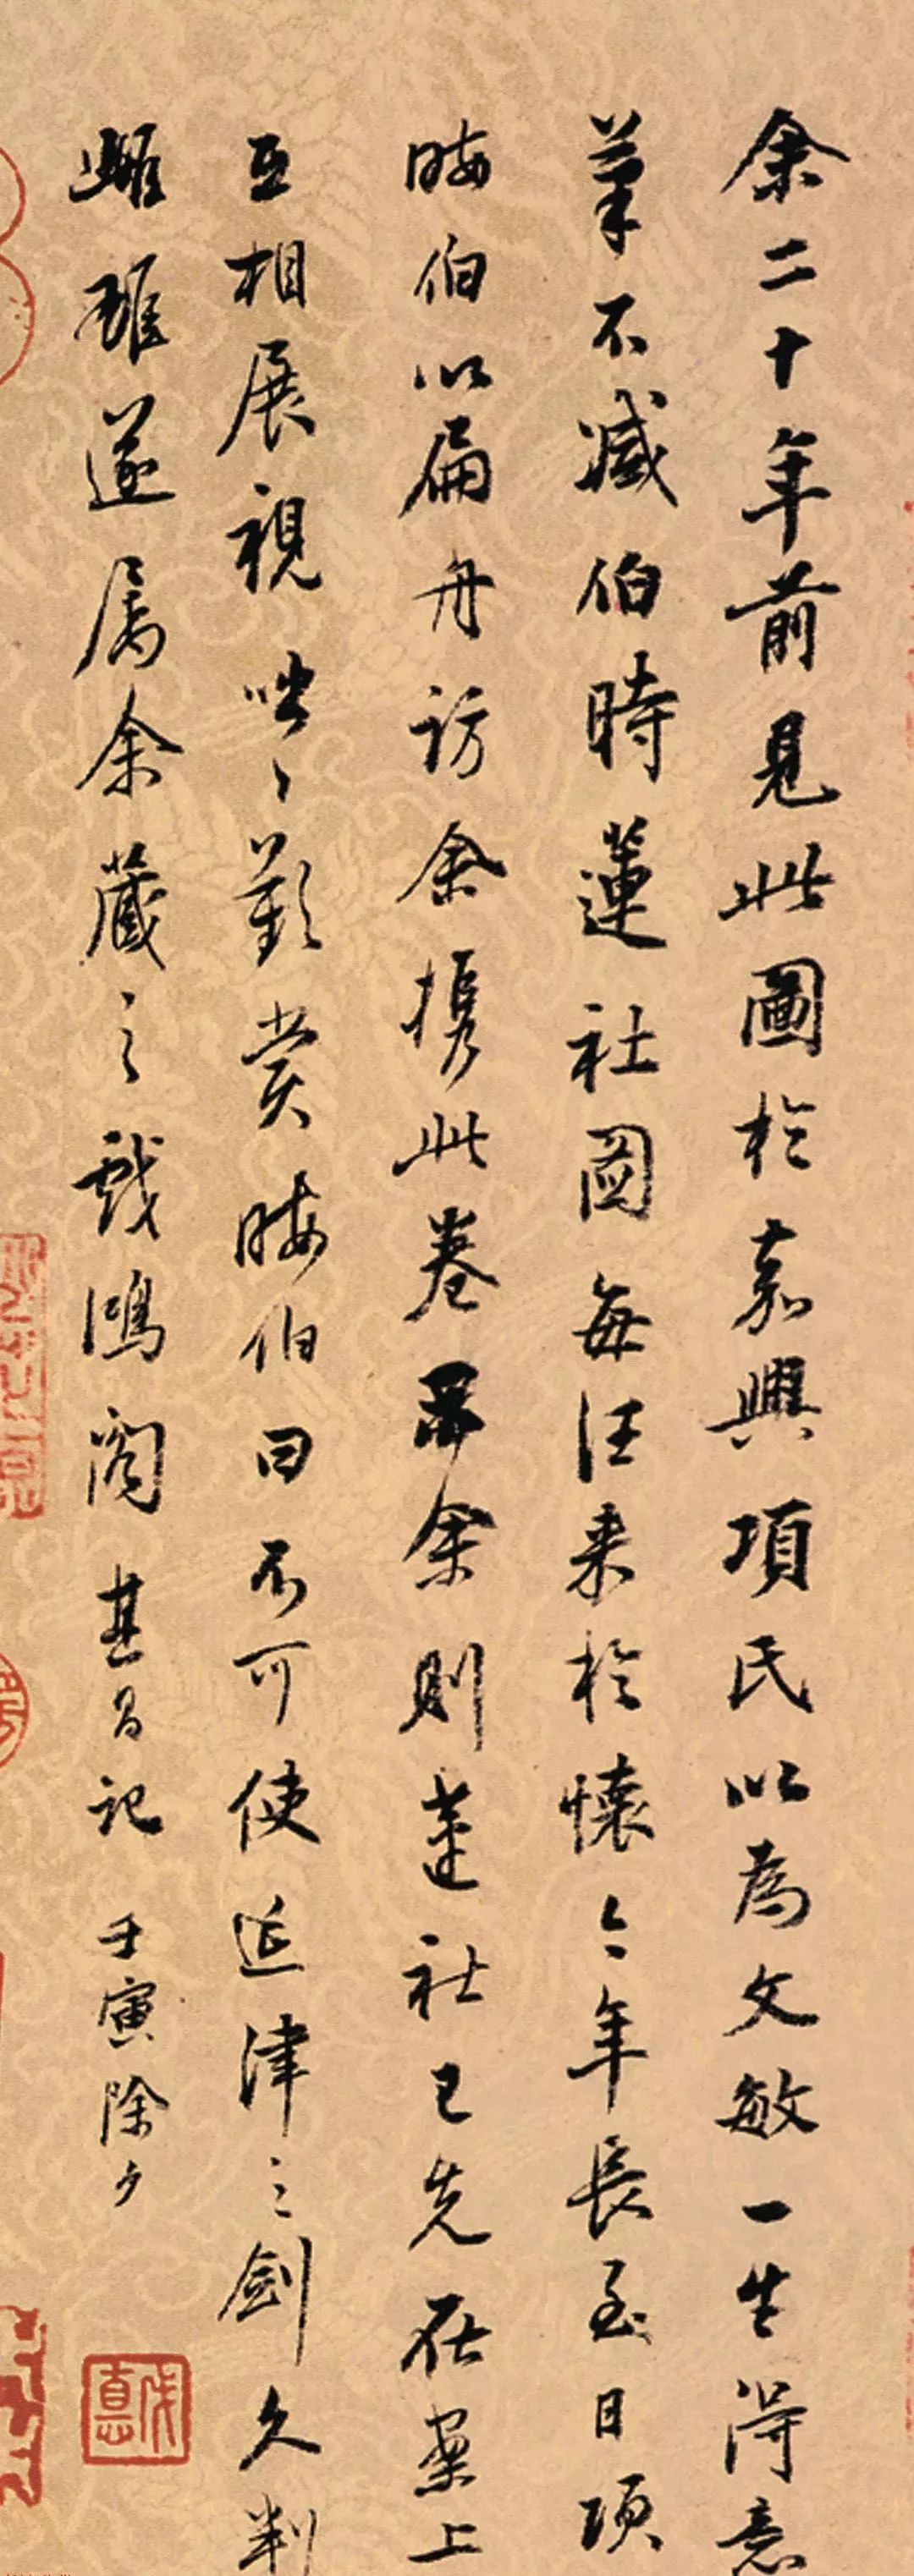 余二十年前見此圖於嘉興項氏以為文敏一生得意
筆不減伯時蓮社圖每往來於懷今年長至日項
晦伯以扁舟訪余攜此卷余則蓮社已先在案上
互相展視咄〻歎賞晦伯曰不可使延津之劍久判
雌雄遂屬余藏之戲鴻閣其昌記壬寅除夕